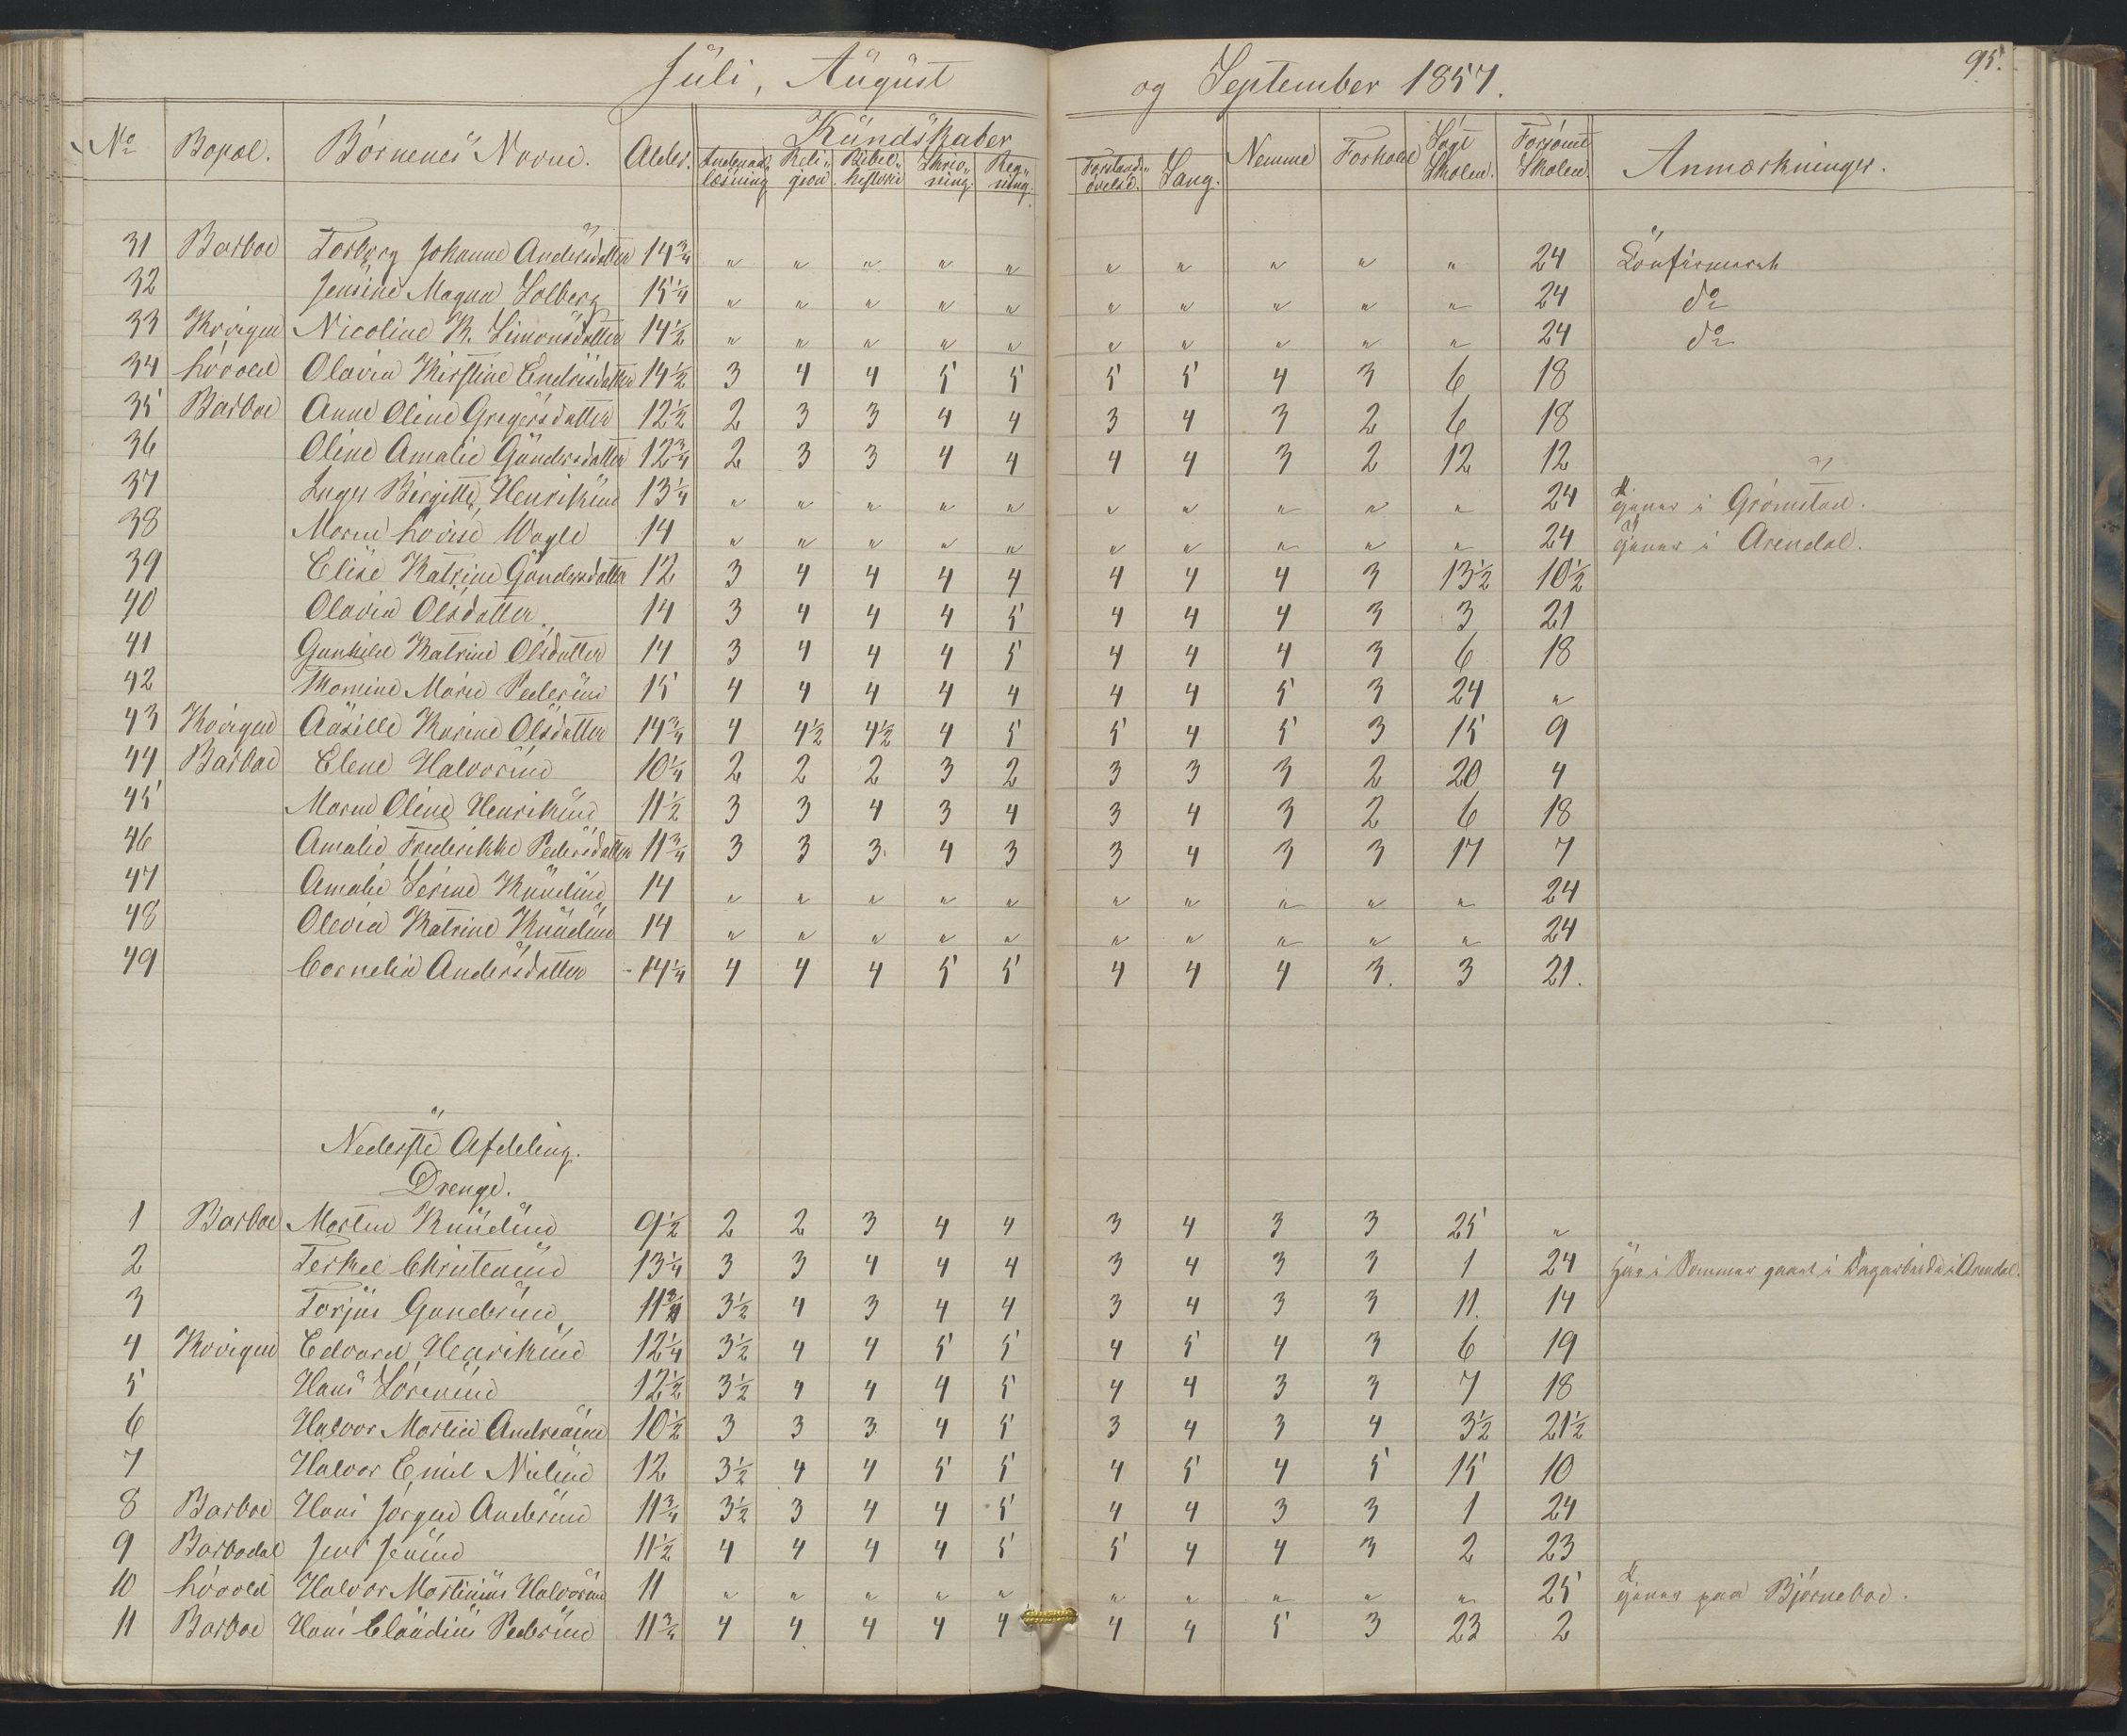 Juli, August og September 1857. 95.
No Bopæl. Börnenes Navne. Alder. Kundskaber Nemme Forhold Søgt Skolen. Forsömt Skolen Anmærkninger.
Indenad- læsning Reli- gion Bibel- historie Skriv- ning. Reg- ning. Forstands- övelse. Sang.
31 Barboe Torborg Johanne Andersdatter 14 3/4 " " " " " " " " " " 24 Confirmeret
32 Jensine Magna Solberg 15 1/4 " " " " " " " " " " 24 do
33 Kovigen Nicoline K. Simonsdatter 14 1/2 " " " " " " " " " " 24 do
34 Lövold Olavia Kirstine Endresdatter 14 1/2 3 4 4 5 5 5 5 4 3 6 18
35 Barboe Anne Oline Gregersdatter 12 1/2 2 3 3 4 4 3 4 3 2 6 18
36 Oline Amalie Gundersdatter 12 3/4 2 3 3 4 4 4 4 3 2 12 12
37 Inger Birgitte Henriksen 13 1/4 " " " " " " " " " " 24 tjener i Grömstad.
38 Maren Lovise Wagle 14 " " " " " " " " " " 24 tjener i Arendal.
39 Elise Katrine Gundersdatter 12 3 4 4 4 4 4 4 4 3 13 1/2 10 1/2
40 Olavia Olsdatter 14 3 4 4 4 5 4 4 4 3 3 21
41 Gunhild Katrine Olsdatter 14 3 4 4 4 5 4 4 4 3 6 18
42 Thomine Marie Pedersen 15 4 4 4 4 4 4 4 5 3 24 "
43 Kovigen Aasille Karine Olsdatter 14 3/4 4 4 1/2 4 1/2 4 5 5 4 5 3 15 9
44 Barboe Elene Halvorsen 10 1/4 2 2 2 3 2 3 3 3 2 20 4
45 Maren Oline Henriksen 11 1/2 3 3 4 3 4 3 4 3 2 6 18
46 Amalie Frederikke Pedersdatter 11 3/4 3 3 3 4 3 3 4 3 3 17 7
47 Amalie Serine Knudsen 14 " " " " " " " " " " 24
48 Olevia Katrine Knudsen 14 " " " " " " " " " " 24
49 Cornelia Andersdatter 14 1/4 4 4 4 5 5 4 4 4 3. 3 21.
Nederste Afdeling.
Drenge.
1 Barboe Morten Knudsen 9 1/2 2 2 3 4 4 3 4 3 3 25 "
2 Terkel Christensen 13 1/4 3 3 4 4 4 3 4 3 3 1 24 har i Sommer gaaet i Dagarbeide i Arendal.
3 Torjus Gundersen 11 3/4 3 1/2 4 3 4 4 3 4 3 3 11. 14
4 Kovigen Edvard Henriksen 12 1/4 3 1/2 4 4 5 5 4 5 4 3 6 19
5 Hans Sörensen 12 1/2 3 1/2 4 4 4 5 4 4 3 3 7 18
6 Halvor Martin Andreasen 10 1/2 3 3 3 4 5 3 4 3 4 3 1/2 21 1/2
7 Halvor Emil Nielsen 12 3 1/2 4 4 5 5 4 5 4 5 15 10
8 Barboe Hans Jörgen Andersen 11 3/4 3 1/2 3 4 4 5 4 4 3 3 1 24
9 Barbodal Jens Jensen 11 1/2 4 4 4 4 5 5 4 4 3 2 23
10 Lövold Halvor Martinius Halvorsen 11 " " " " " " " " " " 25 tjener paa Björneboe.
11 Barboe Hans Claudius Pedersen 11 3/4 4 4 4 4 4 4 4 5 3 23 2